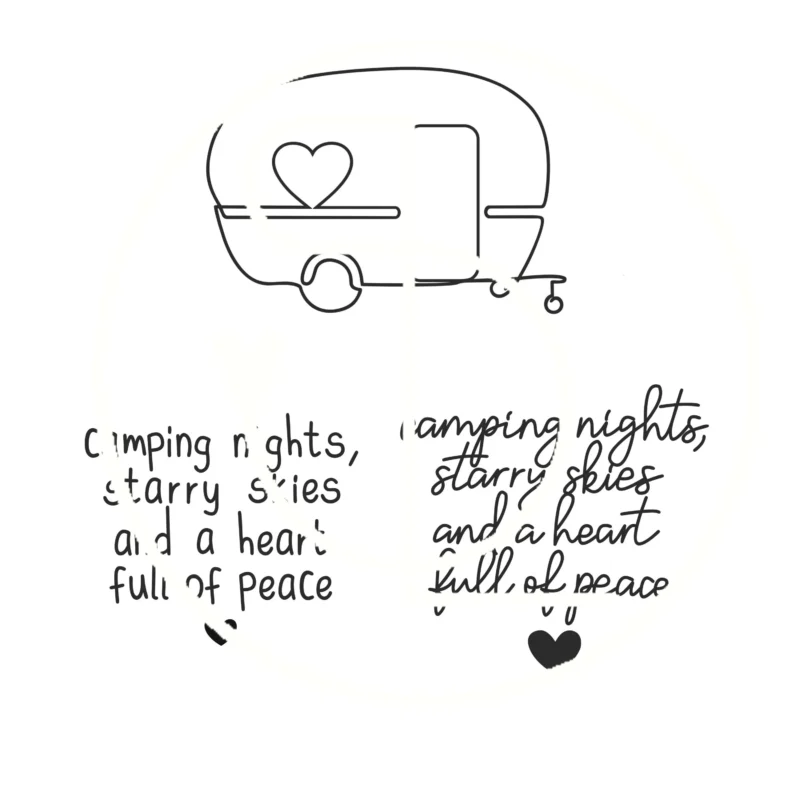 camping nights,
starry skies
and a heart
full of peace
camping nights,
starry skies
and a heart
full of peace